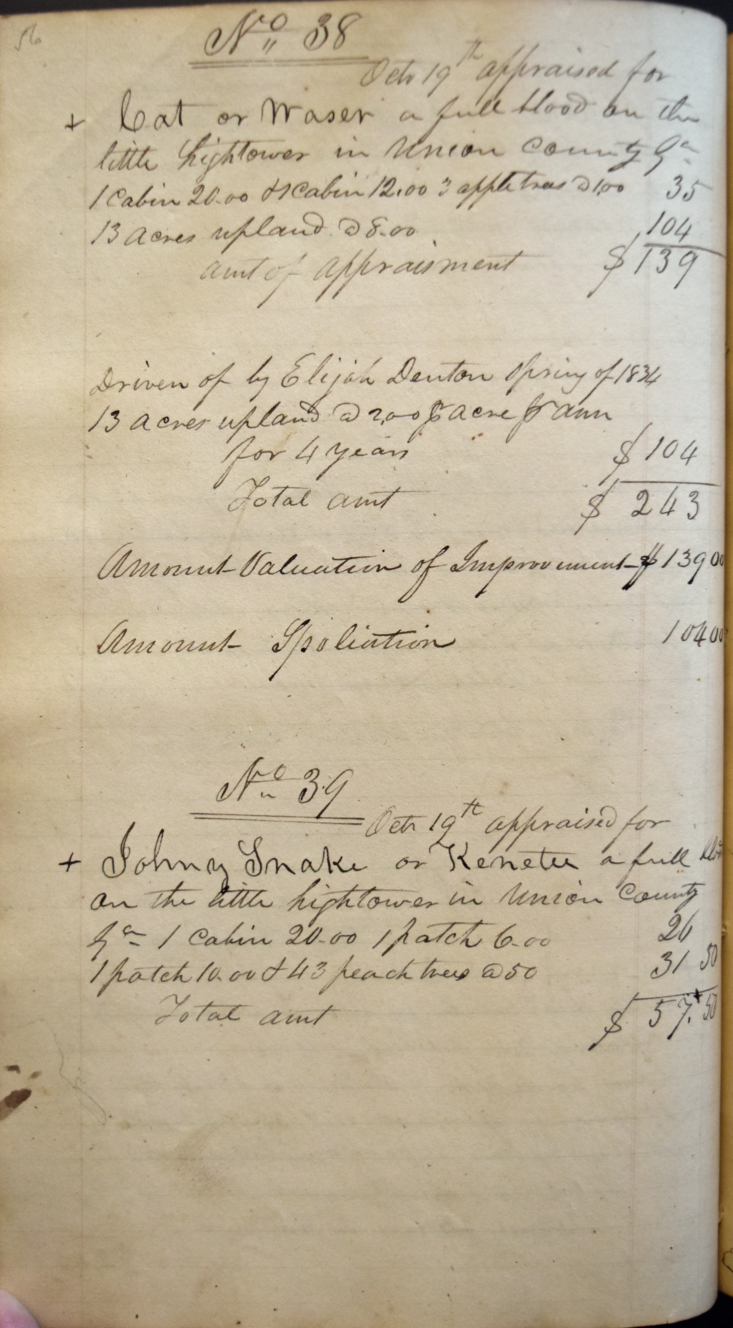 56
No 38
Octr 19th appraised for
+ Cat or Waser a full blood on the
little hightower in Union County Ga
1 cabin 20.00 & 1 cabin 12.00 3 apple trees @1.00 35
13 acres upland @8.00 104
amt of appraisment $139
Driven of by Elijah Denton Spring of 1834
13 acres upland @2.00 pr acre pr ann
for 4 years $104
Total amt $243
Amount Valuation of Improvement $139 00
Amount Spoliation 104 00
No 39
Octr 19th appraised for
+ Johny Snake or Kenetee a full
on the little hightower in Union County
Ga 1 cabin 20.00 1 patch 6.00 26
1 patch 10.00 & 43 peach trees @50 31 50
Total amt $57.50